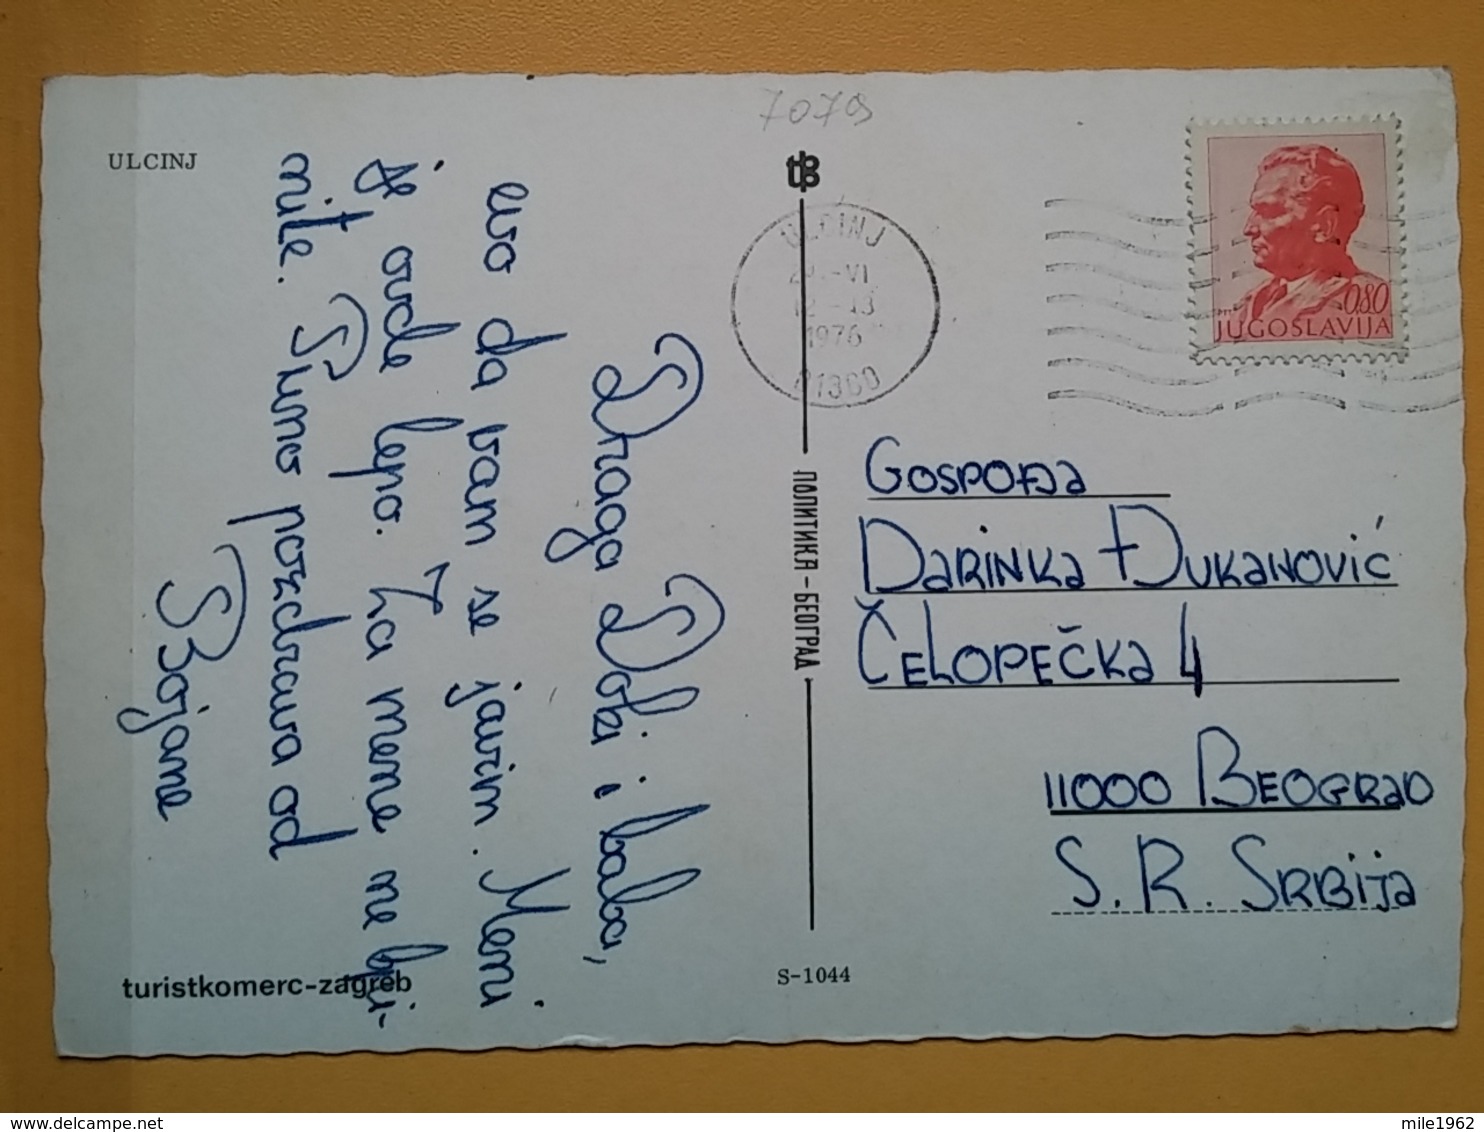 7079
ULCINJ
Draga Deki i baba,
evo da vam se javim. Meni
je ovde lepo. Za mene ne bri-
nite. Puno pozdrava od
Bojane
turistkomerc-zagreb
S-1044
ПОЛИТИКА-БЕОГРАД
ULCINJ
-VI
12-13
1976
JUGOSLAVIJA
0.80
Gospođa
Darinka Đukanović
Čelopečka 4
11000 Beograd
S. R. Srbija
mile1962